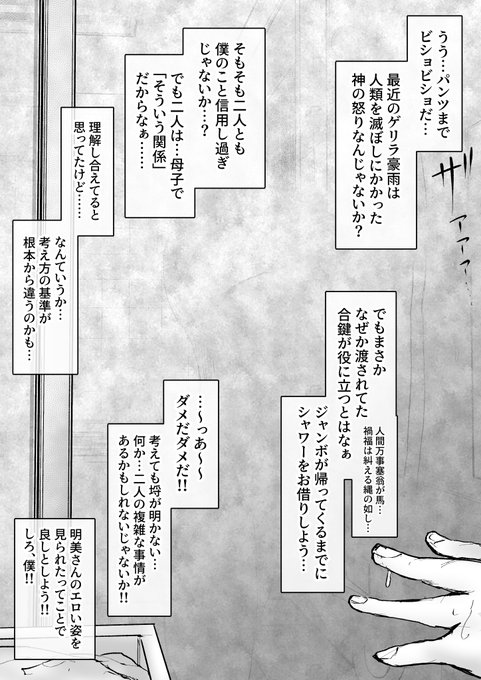 うう…パンツまで
ビショビショだ…
最近のゲリラ豪雨は
人類を滅ぼしにかかった
神の怒りなんじゃないか?
ザァアァアー…
そもそも二人とも
僕のこと信用し過ぎ
じゃないか…?
でも二人は…母子で
「そういう関係」
だからなぁ……
理解し合えてると
思ってたけど……
なんていうか…
考え方の基準が
根本から違うのかも…
でもまさか
なぜか渡されてた
合鍵が役に立つとはなぁ
人間万事塞翁が馬…
禍福は糾える縄の如し…
ジャンボが帰ってくるまでに
シャワーをお借りしよう…
…〜っあ〜〜
ダメだダメだ!!
考えても埒が明かない…
何か…二人の複雑な事情が
あるかもしれないじゃないか!!
明美さんのエロい姿を
見られたってことで
良しとしよう!!
しろ、僕!!